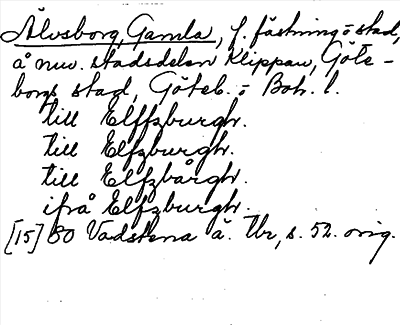 Älvsborg, Gamla, f. fästning o stad,
å nuv. stadsdelen Klippan, Göte-
borgs stad, Göteb. o Boh. l.
till Elffzburgh.
till Elfzburgh.
till Elfzbårgh.
ifrå Elfzburgh.
[15]80 Vadstena ä. Ur, s. 52. orig.